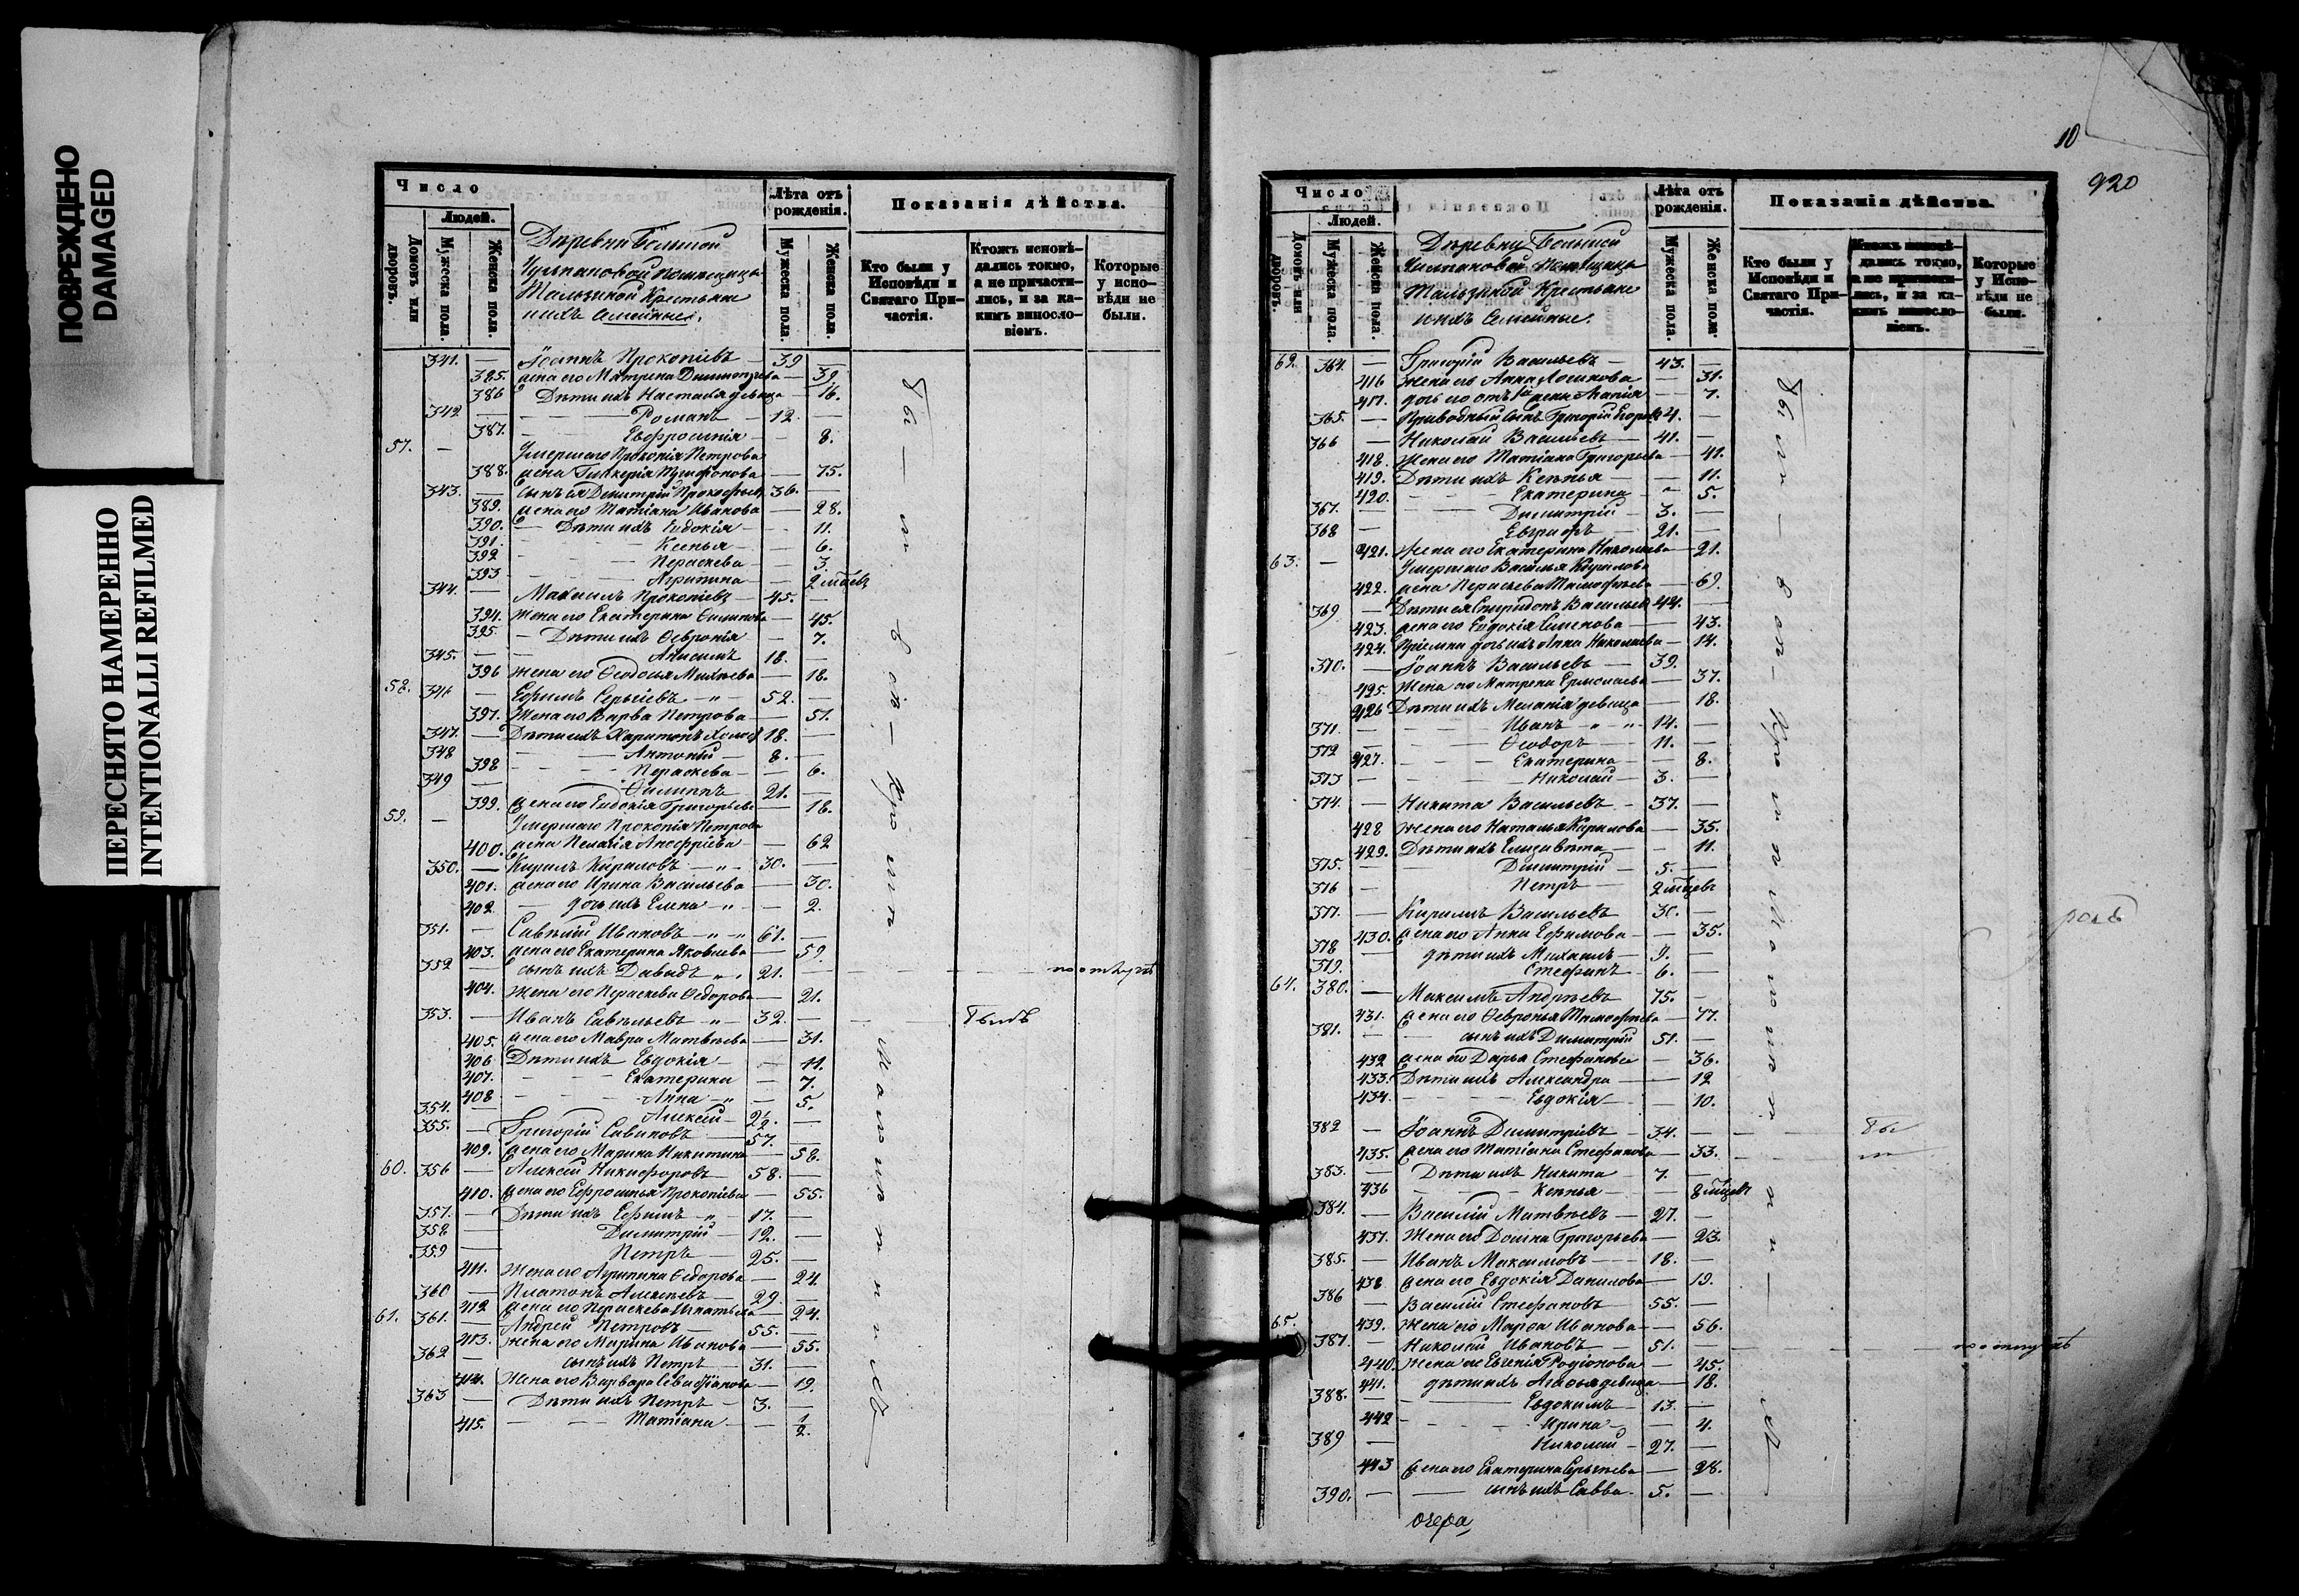 ПОВРЕЖДЕНО
DAMAGED
ПЕРЕСНЯТО НАМЕРЕННО
INTENTIONALLI REFILMED
Число
Людей.
Домовъ или дворовъ.
Мужеска пола.
Женска пола.
Деревни Большой
помѣщицы
Крестьяне
ихъ Семейные.
Лѣта отъ рожденія.
Мужеска пола.
Женска пола.
Показанія дѣйства.
Кто были у Исповѣди и Святаго Причастія.
Ктожъ исповѣдались токмо, а не причастились, и за какимъ винословіемъ.
Которые у исповѣди не были.
341. — Іоаннъ Прокопіевъ — 39 —
385. жена его Матрена Димитріева — 39
386 Дѣти ихъ Настасья девица — 16.
342 — Романъ — 12. —
387. Евфросинія — 8.
57. — Умершаго Прокопія Петрова
388. жена Гликерія — 75.
343. — Сынъ ея Димитрій Прокофьев 36. —
389. жена его Татіана Иванова — 28.
390. — Дѣти ихъ Евдокія — 11.
391. Ксенья — 6.
392 Параскева — 3.
393 Агрипина — 2 мѣсяцевъ
344. — Михаилъ Прокопіевъ — 45. —
394. Жена его Екатерина — 45.
395. — Дѣти ихъ Ѳевронія — 7.
345. — Анисимъ 18. —
396 жена его Ѳеодосья — 18.
58. 346 — Ефимъ Сергѣевъ — 52. —
397. Жена его Варвара Петрова — 51.
347. — Дѣти ихъ Харитонъ холост 18. —
348 — Антоній — 8. —
398 Параскева — 6.
349 — Филиппъ 21. —
399. жена его Евдокія Григорьева — 18.
59. — Умершаго Прокопія Петрова
400. жена Пелагія — 62
350. — Кирилъ Кириловъ — 30. —
401. жена его Ирина Васильева — 30.
402 — дочь ихъ Елена — 2.
351. — Савелій Ивановъ — 61. —
403. жена его Екатерина Яковлева — 59.
352 — сынъ ихъ Давыдъ 21. —
404. Жена его Параскева Ѳедорова — 21.
353. — Иванъ Савельевъ — 32. — былъ
405. жена его Мавра Матвѣева — 31.
406 Дѣти ихъ Евдокія — 11.
407. Екатерина — 7.
408 Анна — 5.
354. — Алексѣй — 2½. —
355. — Григорій — 57. —
409. жена его Марина Никитина — 58.
60. 356 — Алексѣй Никифоровъ — 58. —
410. жена его Ефросинья Прокопіева — 55.
357. — Дѣти ихъ Ефимъ — 17. —
358 — Димитрій — 12. —
359 — Петръ — 25. —
411. Жена его Агрипина Ѳедорова — 24.
360 — Платонъ Алексѣевъ — 29 —
412 жена его Параскева Игнатьева — 24.
61. 361. — Андрей Петровъ — 55. —
413. Жена его Марина Иванова — 55.
362 — сынъ ихъ Петръ — 31. —
414. Жена его Варвара — 19.
363 — Дѣти ихъ Петръ — 3. —
415. Татіана — ½.
10
920
Число
Людей.
Домовъ или дворовъ.
Мужеска пола.
Женска пола.
Деревни Большой
помѣщицы
Крестьяне
ихъ Семейные.
Лѣта отъ рожденія.
Мужеска пола.
Женска пола.
Показанія дѣйства.
Кто были у Исповѣди и Святаго Причастія.
Ктожъ исповѣдались токмо, а не причастились, и за какимъ винословіемъ.
Которые у Исповѣди не были.
62. 364. — Григорій Васильевъ — 43. —
416 Жена его Анна — 31.
417. дочь его отъ 1й жены Марія — 7.
365. — Приводный сынъ Григорій Егоров 4. —
366 — Николай Васильевъ — 41. —
418. Жена его Татіана Григорьева — 41.
419. Дѣти ихъ Ксенья — 11.
420. Екатерина — 5.
367. Димитрій — 3. —
368 — Евграфъ — 21. —
421. Жена его Екатерина Николаева — 21.
63. — Умершаго Василья Кирилова
422. жена Параскева Тимофѣева — 69.
369 — Дѣти ея Спиридонъ Васильев 44. —
423. жена его Евдокія Семенова — 43.
424. Пріемна дочь ихъ Анна Николаева — 14.
370. — Іоаннъ Васильевъ — 39. —
425. Жена его Матрена Ермолаева — 37.
426 Дѣти ихъ Меланія девица — 18.
371. Иванъ 14. —
372 — Ѳеодоръ — 11. —
427. Екатерина — 8.
373 — Николай — 3. —
374. — Никита Васильевъ — 37. —
428 Жена его Наталья Кирилова — 35.
429. Дѣти ихъ Елизавета — 11.
375. — Димитрій — 5. —
376 — Петръ — 2 мѣсяцевъ
377. — Кирилъ Васильевъ 30. —
430. жена его Анна Ефимова — 35.
378 — дѣти ихъ Михаилъ — 9. —
379. Стефанъ — 6. —
64. 380. — Максимъ Андреевъ 75. —
431. жена его Ѳевронья Тимофѣева — 77.
381. — сынъ ихъ Димитрій 51. —
432 жена его Дарья Стефанова — 36.
433. Дѣти ихъ Александра — 12
434. Евдокія — 10.
382 — Іоаннъ Димитріевъ — 34. —
435. жена его Татіана Стефанова — 33.
383. — Дѣти ихъ Никита — 7. —
436 Ксенья — 8 мѣсяцевъ
384. — Василій Матвѣевъ — 27. —
437. Жена его Домна Григорьева — 23.
385. — Иванъ Максимовъ — 18. —
438 жена его Евдокія Данилова — 19.
386 — Василій Стефановъ — 55. —
65. 439. Жена его Марѳа Иванова — 56.
387. — Николай Ивановъ — 51. —
440. Жена его Евгенія Родіонова — 45.
441. дѣти ихъ Агафья девица — 18.
388. — Евдокимъ — 13. —
442 Ирина — 4.
389 — Николай — 27. —
443 жена его Екатерина Сергѣева — 28.
390. — сынъ ихъ Савва. 5. —